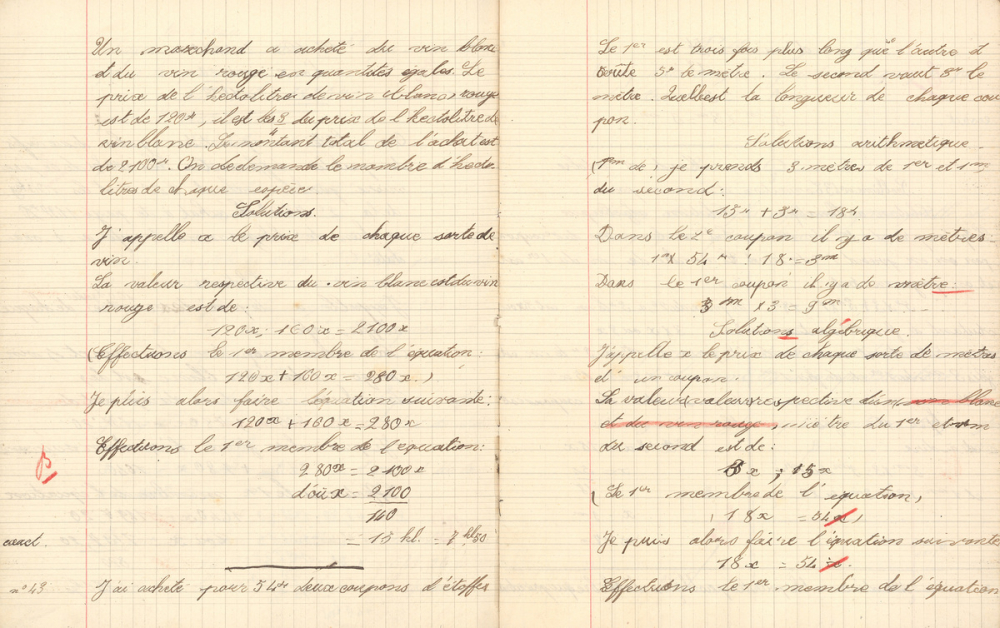 Un marchand a acheté du vin blanc
et du vin rouge en quantités égales. Le
prix de l'hectolitre de vin blanc, rouge
est de 120 fr, il est les 3 du prix de l'hectolitre de
vin blanc. Le montant total de l'achat est
de 2100 fr. On demande le nombre d'hecto
litres de chaque espèce
Solutions.
J'appelle x le prix de chaque sorte de
vin.
La valeur respective du vin blanc et du vin
rouge est de:
120x, 160x = 2100x
(Effectuons le 1er membre de l'équation:
120x + 160x = 280x.)
Je puis alors faire l'équation suivante:
120x + 160x = 280x
Effectuons le 1er membre de l'équation:
280x = 2100x
d'où x = 2100
140
= 15 hl. = 7 hl,50
n° 43 J'ai acheté pour 54 fr deux coupons d'étoffes
Le 1er est trois fois plus long que l'autre et
coûte 5 fr le mètre. Le second vaut 3 fr le
mètre. Quelle est la longueur de chaque cou
pon.
Solutions arithmétique.
je prends 3 mètres de 1er et 1m
du second:
15 fr + 3 fr = 18 fr
Dans le 2e coupon il y a de mètres
1m x 54 fr : 18 = 3m
Dans le 1er coupon il y a de mètre:
3m x 3 = 9m
Solutions algébrique.
J'appelle x le prix de chaque sorte de mètres
d'un coupon.
La valeur valeur respective du vin blanc
et du vin rouge, mètre du 1er et
du second est de:
3x, 15x
(Le 1er membre de l'équation,
18x = 54x)
Je puis alors faire l'équation suivante
18x = 54x.
Effectuons le 1er membre de l'équation